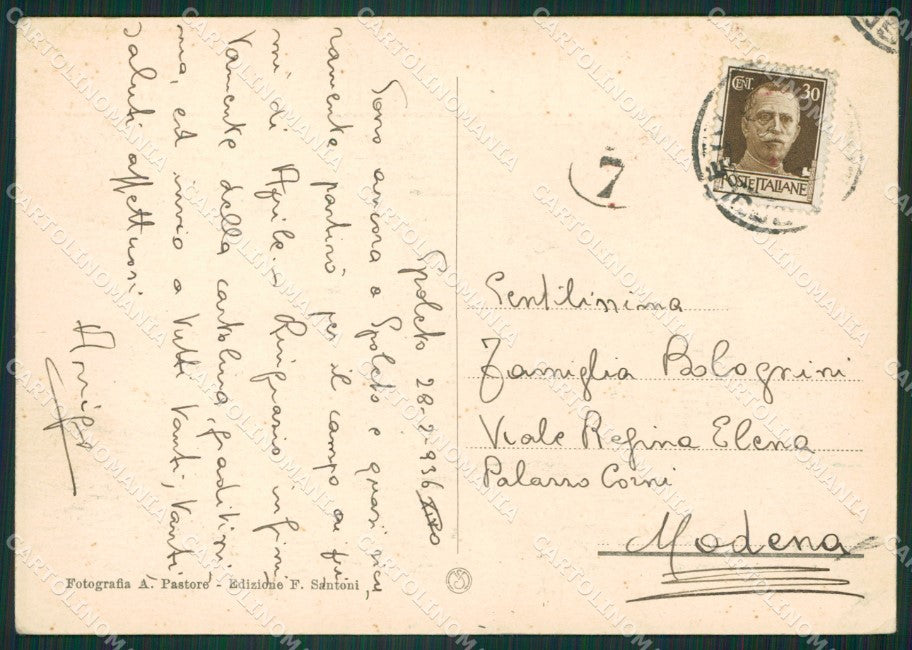 Spoleto 28-2-936 XIV°
Sono ancora a Spoleto e quasi sicu,
ramente partirò per il campo ai pri,
mi di Aprile. Ringrazio infini,
tamente della cartolina, graditissi,
ma, ed invio a tutti tanti, tanti
saluti affettuosi
Arrigo
CENT. 30
POSTE ITALIANE
7
Gentilissima
Famiglia Bolognini
Viale Regina Elena
Palazzo Corni
Modena
Fotografia A. Pastore - Edizione F. Santoni
CARTOLINOMANIA